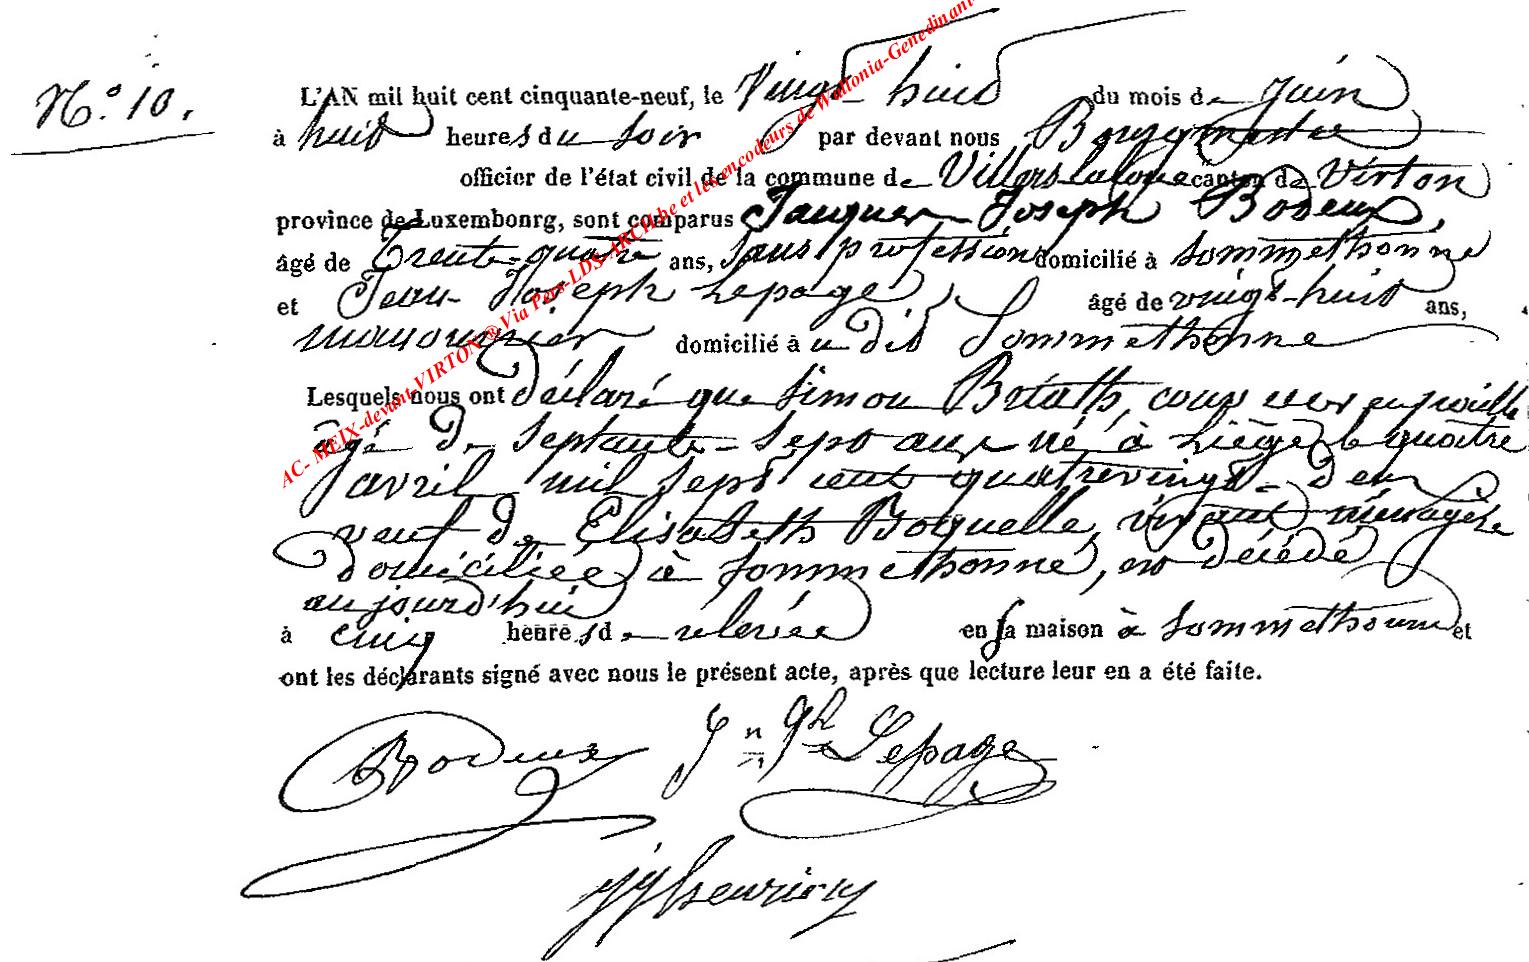 N.° 10.
L'AN mil huit cent cinquante-neuf, le Vingt huit du mois de Juin
à huit heures du soir par devant nous Bourgmestre
officier de l'état civil de la commune de Villers la loue canton de Virton
province de Luxembonrg, sont comparus Jacques Joseph Bodeux,
âgé de Trente-quatre ans, sans profession domicilié à Sommethonne
et Jean Joseph Lepage, âgé de vingt-huit ans,
manouvrier domicilié à u dit Sommethonne
Lesquels nous ont déclaré que Simon
âgé de septante-sept ans né à Liège le quatre
avril mil sept cent quatrevingt-deux
veuf de Elisabeth Boquelle, vivant ménagère
domiciliée à Sommethonne, est décédé
aujourd'hui
à cinq heures de relevée en sa maison à Sommethonne et
ont les déclarants signé avec nous le présent acte, après que lecture leur en a été faite.
Bodeux Jn Jh Lepage
AC- MEIX-devant-VIRTON ® Via Pers-LDS-ARCHhe et les encodeurs de Wallonia-Genedinant